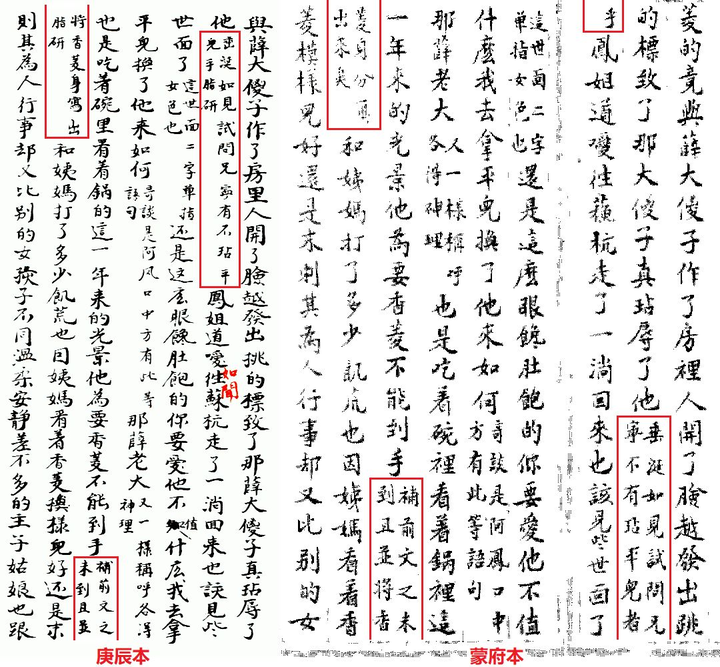 與薛大傻子作了房里人開了臉越發出挑的標致了那薛大傻子真玷辱了
他垂涎如見試問兄寧有不玷平兒乎脂研鳳姐道噯徃蘇杭走了一淌回来也該見些
如聞
世面了這世面二字單指女色也还是这庅眼饞肚飽的你要愛他不值什庅我去拿
平兒換了他来如何奇談是阿凤口中方有此等語句那薛老大又一樣稱呼各得神理
也是吃着碗里看着鍋的這一年来的光景他為要香菱不能到手補前文之未到且並
將香菱身寫出脂研和姨媽打了多少飢荒也因姨媽看着香菱模樣兒好还是末
則其為人行事却又比别的女孩子不同温柔安静差不多的主子姑娘也跟
庚辰本
菱的竟與薛大傻子作了房裡人開了臉越發出跳
的標致了那大傻子真玷辱了他垂涎如見試問兄寧不有玷平兒者
乎鳳姐道噯徃蘓杭走了一淌回来也該見些世面了
這世面二字單指女色也還是這麽眼饞肚飽的你要愛他不值
什麽我去拿平兒換了他来如何奇談是阿鳳口中方有此等語句
那薛老大人一樣稱呼各得神理也是吃着碗裡看着鍋裡這
一年来的光景他為要香菱不能到手補前文之未到且並將香
菱身分寫出来矣和姨媽打了多少飢荒也因姨媽看着香
菱模樣兒好還是末則其為人行事却又比别的女
蒙府本